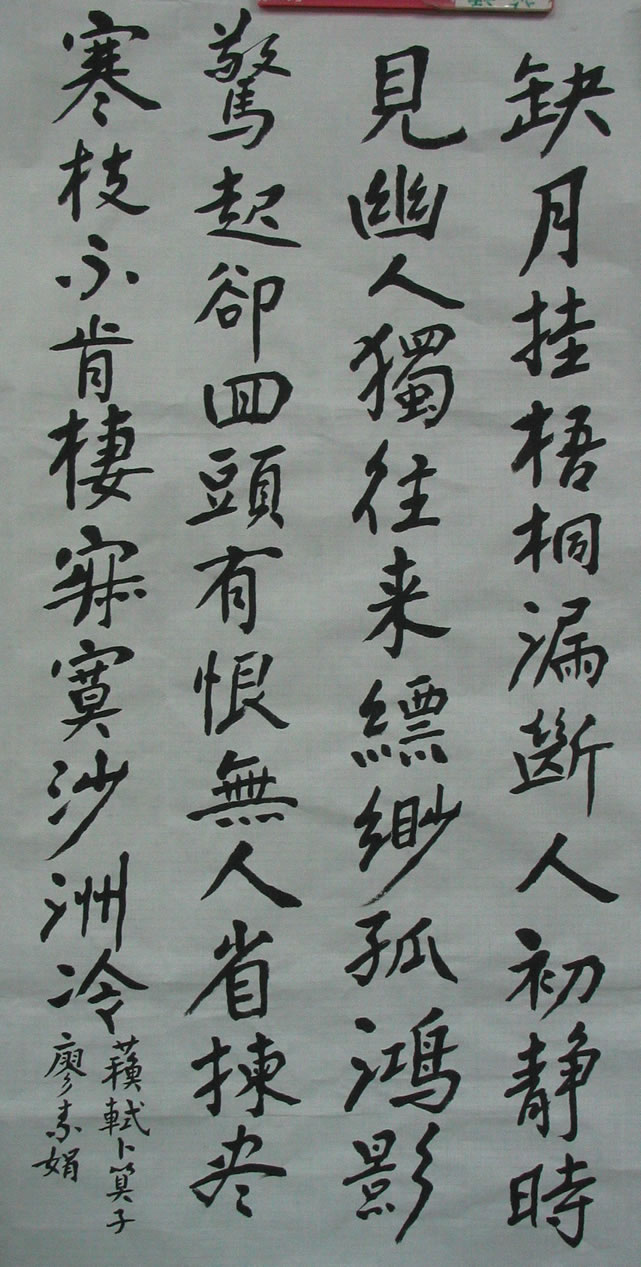 缺月挂梧桐漏斷人初静時
見幽人獨往来縹緲孤鴻影
驚起卻回頭有恨無人省揀尽
寒枝不肯棲寂寞沙洲冷
蘇軾卜算子
廖素娟